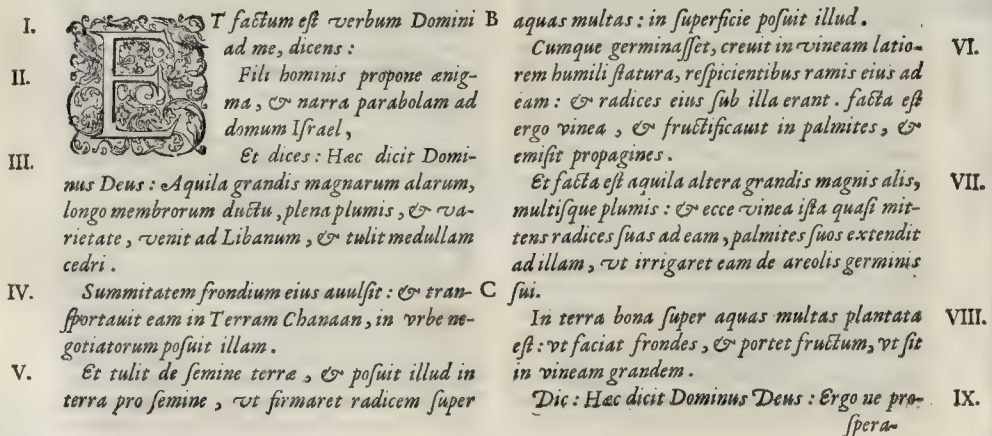 I. ET factum eſt verbum Domini
ad me, dicens :
II. Fili hominis propone ænig-
ma, & narra parabolam ad
domum Iſrael,
III. Et dices : Hæc dicit Domi-
nus Deus : Aquila grandis magnarum alarum,
longo membrorum ductu, plena plumis, & va-
rietate, venit ad Libanum, & tulit medullam
cedri.
IV. Summitatem frondium eius auulſit : & tran-
ſportauit eam in Terram Chanaan, in vrbe ne-
gotiatorum poſuit illam.
V. Et tulit de ſemine terræ, & poſuit illud in
terra pro ſemine, vt firmaret radicem ſuper
B aquas multas : in ſuperficie poſuit illud.
Cumque germinaſſet, creuit in vineam latio- VI.
rem humili ſtatura, reſpicientibus ramis eius ad
eam : & radices eius ſub illa erant. facta eſt
ergo vinea, & fructificauit in palmites, &
emiſit propagines.
Et facta eſt aquila altera grandis magnis alis, VII.
multiſque plumis : & ecce vinea iſta quaſi mit-
tens radices ſuas ad eam, palmites ſuos extendit
ad illam, vt irrigaret eam de areolis germinis
C ſui.
In terra bona ſuper aquas multas plantata VIII.
eſt : vt faciat frondes, & portet fructum, vt ſit
in vineam grandem.
Dic : Hæc dicit Dominus Deus : Ergo ne pro- IX.
ſpera-